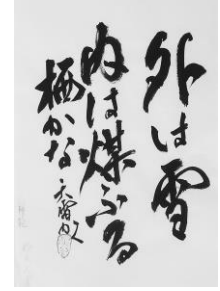 外は雪
内は煤ふる
栖かな